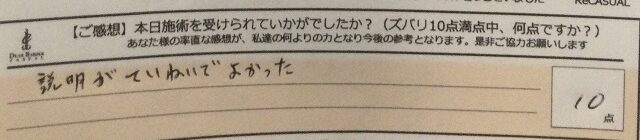 ReCASUAL
【ご感想】本日施術を受けられていかがでしたか？（ズバリ10点満点中、何点ですか？）
あなた様の率直な感想が、私達の何よりの力となり今後の参考となります。是非ご協力お願いします
説明がていねいでよかった
10点